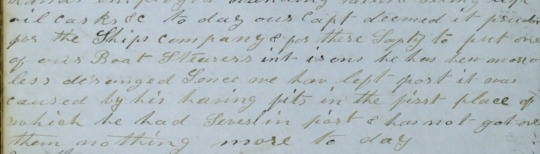 oil casks &c to day our Capt deemed it pruden
for the Ships company & for there Safty to put one
of our Boat Steurers int irons he has ben more or
less deranged Sence we hav left port it was
caused by his having fits in the first place of
which he had Sever in port & has not got ov
them nothing more to day